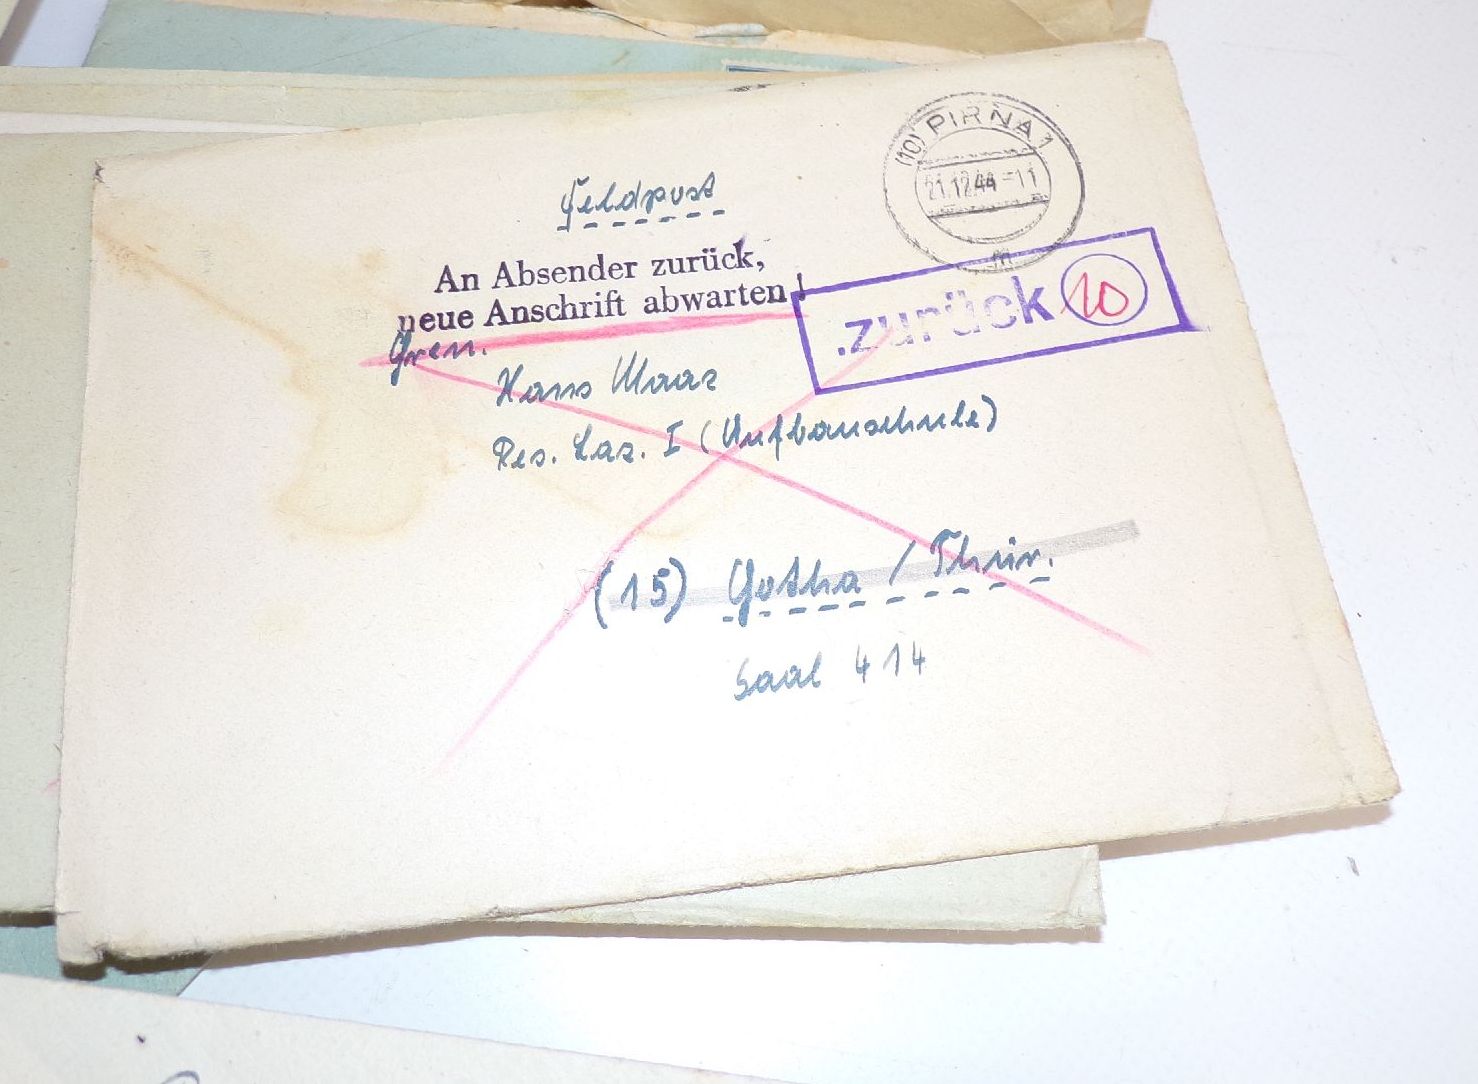 (10) PIRNA 1
21.12.44-11
m
Feldpost
An Absender zurück,
neue Anschrift abwarten!
zurück 10
Gren.
Hans Maaz
Res. Laz. I (Aufbauschule)
(15) Gotha / Thür.
Saal 414